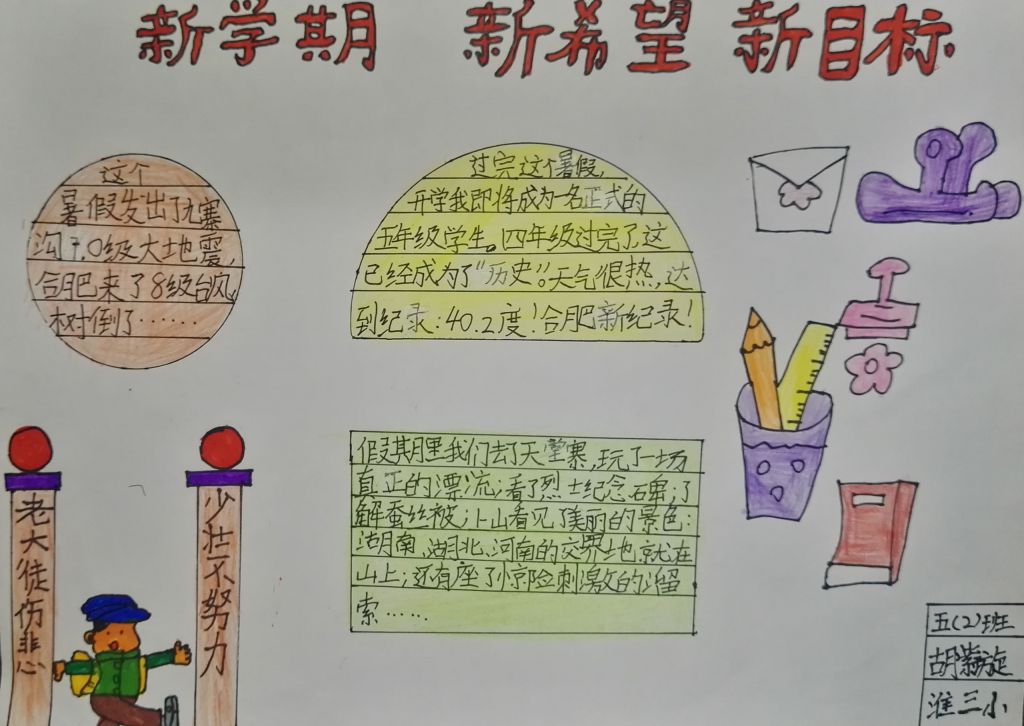 新学期 新希望 新目标
这个
暑假发出了九寨
沟7.0级大地震,
合肥来了8级台风,
树倒了……
过完这个暑假,
开学我即将成为一名正式的
五年级学生。四年级过完了,这
已经成为了“历史”。天气很热,达
到纪录:40.2度!合肥新纪录!
假期里我们去了天堂寨,玩了一场
真正的漂流;看了烈士纪念碑;了
解蚕丝被;上山看见了美丽的景色;
湖南、湖北、河南的交界地,就在
山上;还有座了惊险刺激的溜
索……
少壮不努力
老大徒伤悲
五(2)班
淮三小